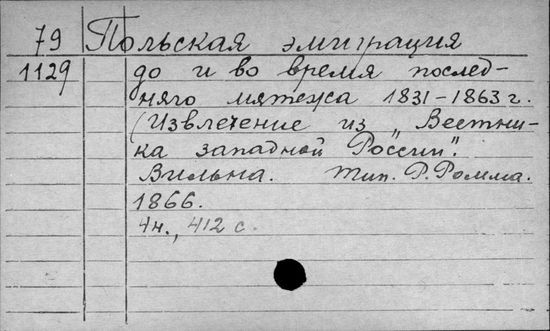 79 Польская эмиграция
1129 до и во время послед-
няго мятежа 1831-1863 г.
(Извлечение из „Вестни-
ка западной России".
Вильна. Тип. Р. Ромма.
1866.
4н., 412 с.